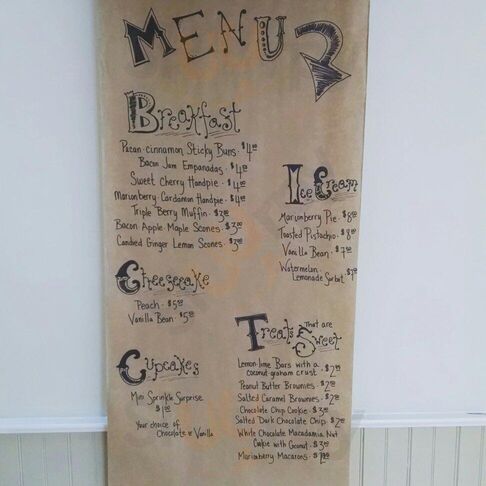 MENU
Breakfast
Pecan-cinnamon Sticky Buns · $4.00
Bacon Jam Empanadas · $4.00
Sweet Cherry Handpie · $4.00
Marionberry Cardamon Handpie · $4.00
Triple Berry Muffin · $3.00
Bacon Apple-Maple Scones · $3.00
Candied Ginger Lemon Scones · $3.00
Ice Cream
Marionberry Pie · $8.00
Toasted Pistachio · $8.00
Vanilla Bean · $7.00
Watermelon
Lemonade Sorbet · $7
Cheesecake
Peach · $5.00
Vanilla Bean · $5.00
Cupcakes
Mini Sprinkle Surprise
$1.00
Your choice of
Chocolate or Vanilla
Treats That are
Sweet
Lemon-lime Bars with a
coconut-graham crust · $2.00
Peanut Butter Brownies · $2.00
Salted Caramel Brownies · $2.00
Chocolate Chip Cookie · $3.00
Salted Dark Chocolate Chip · $2.00
White Chocolate Macadamia Nut
Cookie with Coconut · $3.00
Marionberry Macarons ·